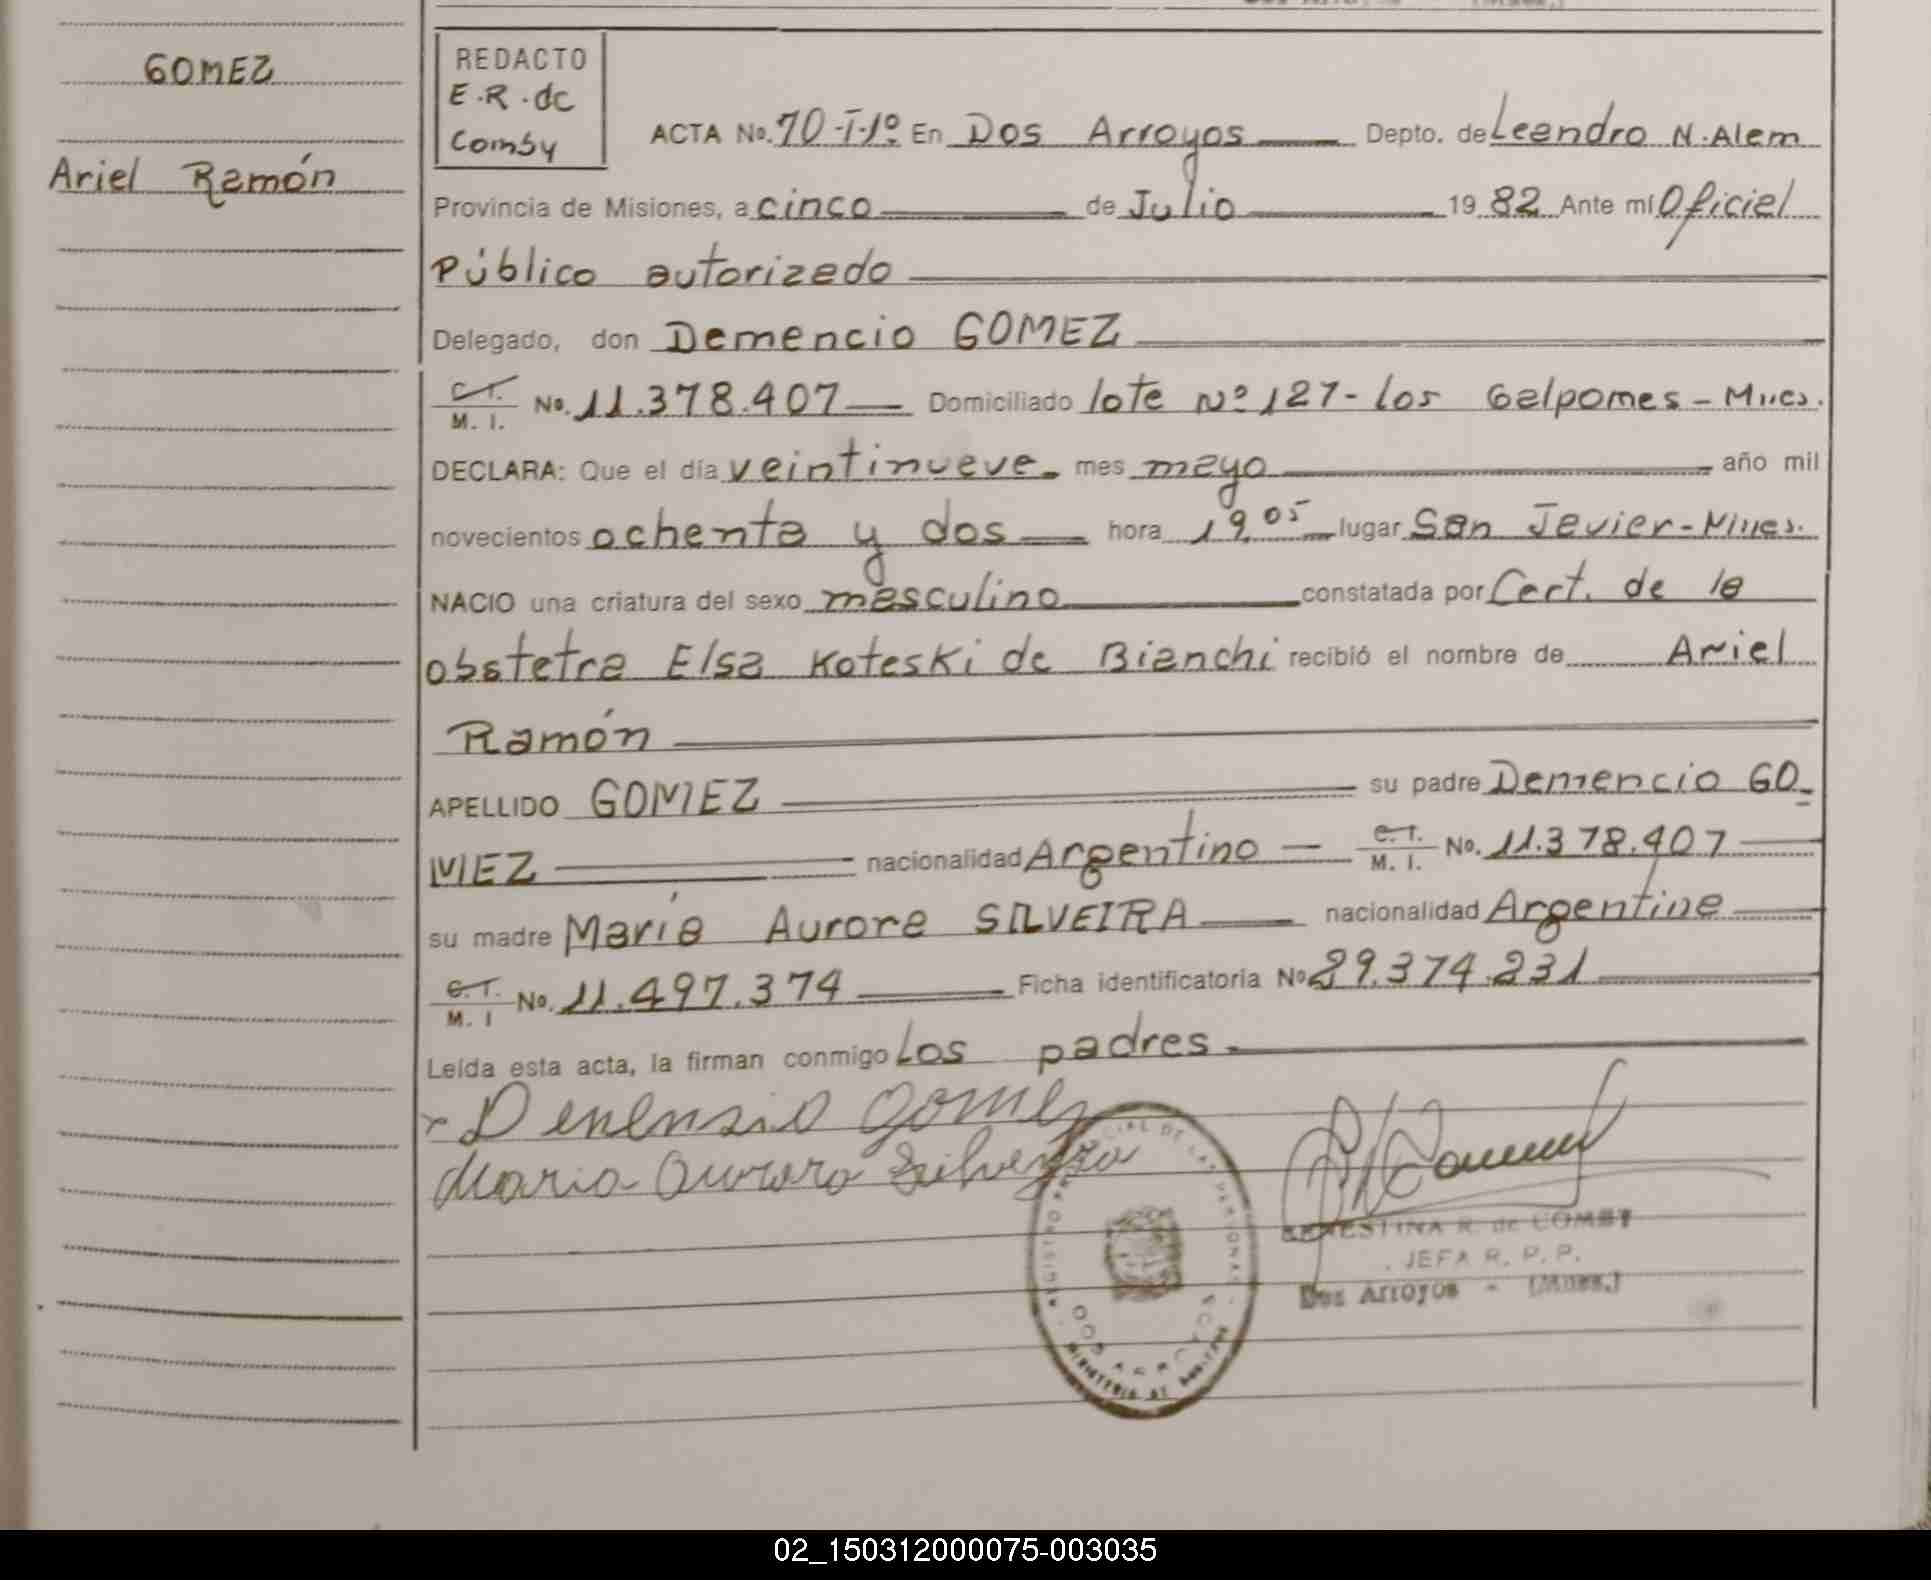 GOMEZ
Ariel Ramón
REDACTO
E.R. de
Comby
ACTA No. 70-T-1º En Dos Arroyos Depto. de Leandro N. Alem
Provincia de Misiones, a cinco de Julio 1982 Ante mí Oficial
Público autorizado
Delegado, don Demencio GOMEZ
C.I. M. I. No. 11.378.407 Domiciliado lote Nº 127 - Los Galpomes - Mnes.
DECLARA: Que el día veintinueve mes mayo año mil
novecientos ochenta y dos hora 19,05 lugar San Javier - Mnes.
NACIO una criatura del sexo masculino constatada por Cert. de la
obstetra Elsa Koteski de Bianchi recibió el nombre de Ariel
Ramón
APELLIDO GOMEZ su padre Demencio GO-
MEZ nacionalidad Argentino C.I. M. I. No. 11.378.407
su madre María Aurora SILVEIRA nacionalidad Argentina
C.I. M. I No. 11.497.374 Ficha identificatoria Nº 29.374.231
Leída esta acta, la firman conmigo Los padres.
Demensio Gomez
Maria Aurora Silveyra
ERNESTINA R. de COMBY
JEFA R. P. P.
Dos Arroyos - (Mnes.)
REGISTRO PROVINCIAL DE LAS PERSONAS
DOS ARROYOS
02_150312000075-003035